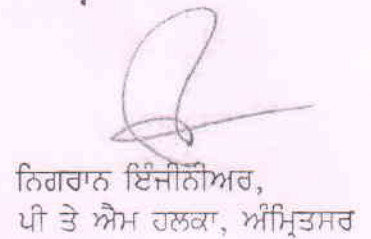 ਨਿਗਰਾਨ ਇੰਜੀਨੀਅਰ,
ਪੀ ਤੇ ਐਮ ਹਲਕਾ, ਅੰਮ੍ਰਿਤਸਰ